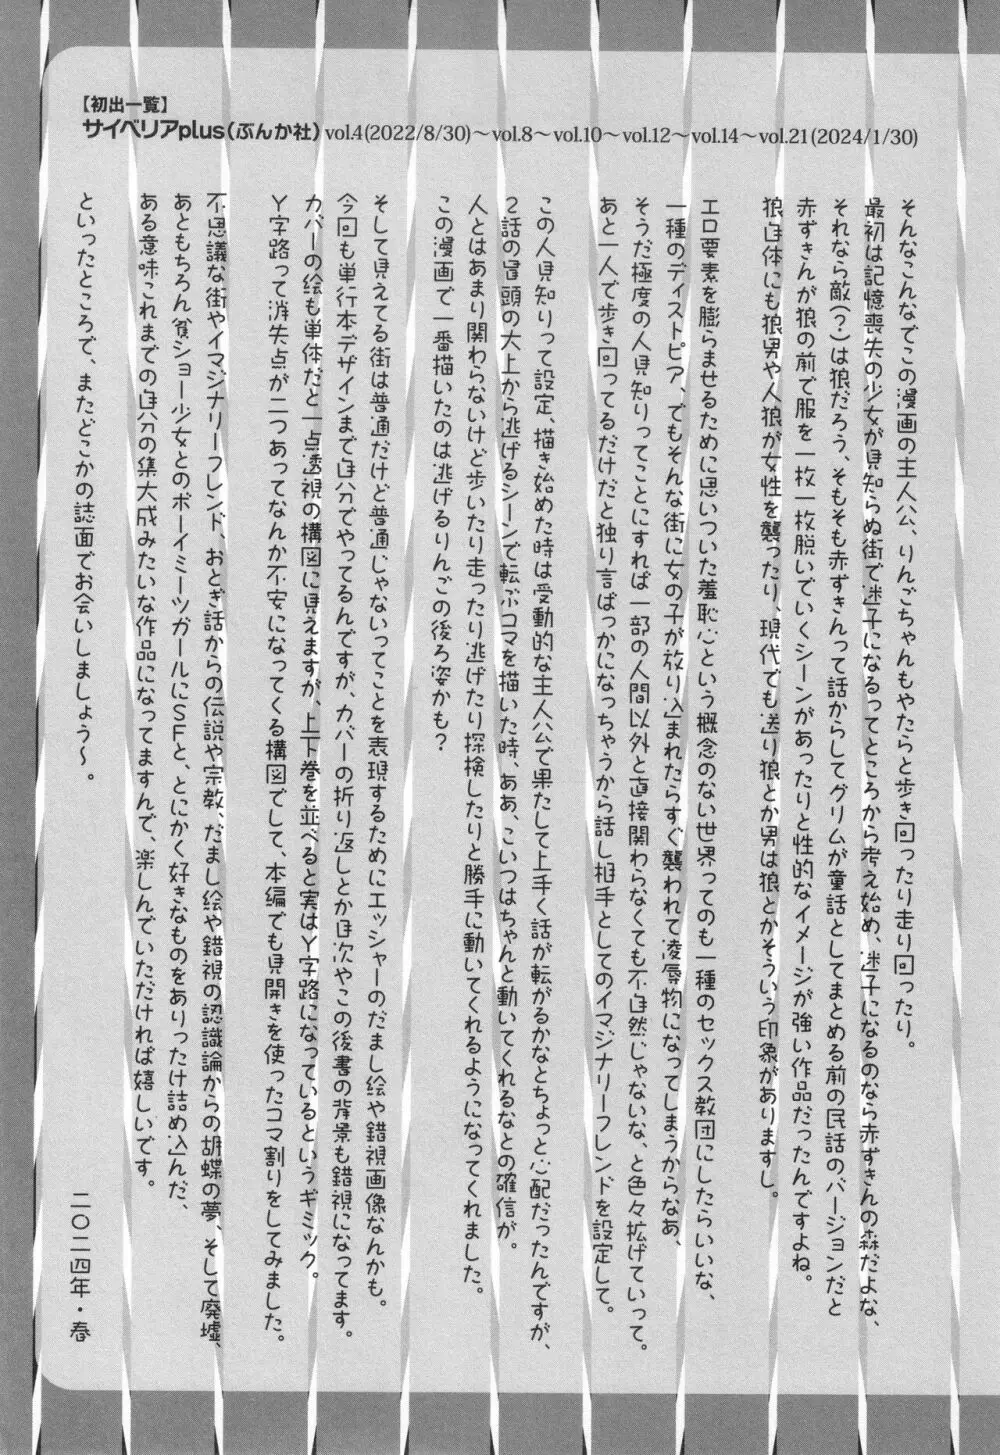 【初出一覧】
サイベリアplus(ぶんか社) vol.4(2022/8/30)〜vol.8〜vol.10〜vol.12〜vol.14〜vol.21(2024/1/30)
そんなこんなでこの漫画の主人公、りんごちゃんもやたらと歩き回ったり走り回ったり。
最初は記憶喪失の少女が見知らぬ街で迷子になるってところから考え始め、迷子になるのなら赤ずきんの森だよな、
それなら敵(?)は狼だろう、そもそも赤ずきんって話からしてグリムが童話としてまとめる前の民話のバージョンだと
赤ずきんが狼の前で服を一枚一枚脱いでいくシーンがあったりと性的なイメージが強い作品だったんですよね。
狼自体にも狼男や人狼が女性を襲ったり、現代でも送り狼とか男は狼とかそういう印象がありますし。
エロ要素を膨らませるために思いついた羞恥心という概念のない世界ってのも一種のセックス教団にしたらいいな、
一種のディストピア、でもそんな街に女の子が放り込まれたらすぐ襲われて凌辱物になってしまうからなあ、
そうだ極度の人見知りってことにすれば一部の人間以外と直接関わらなくても不自然じゃないな、と色々拡げていって。
あと一人で歩き回ってるだけだと独り言ばっかになっちゃうから話し相手としてのイマジナリーフレンドを設定して。
この人見知りって設定、描き始めた時は受動的な主人公で果たして上手く話が転がるかなとちょっと心配だったんですが、
2話の冒頭の大上から逃げるシーンで転ぶコマを描いた時、ああ、こいつはちゃんと動いてくれるなとの確信が。
人とはあまり関わらないけど歩いたり走ったり逃げたり探検したりと勝手に動いてくれるようになってくれました。
この漫画で一番描いたのは逃げるりんごの後ろ姿かも?
そして見えてる街は普通だけど普通じゃないってことを表現するためにエッシャーのだまし絵や錯視画像なんかも。
今回も単行本デザインまで自分でやってるんですが、カバーの折り返しとか目次やこの後書の背景も錯視になってます。
カバーの絵も単体だと一点透視の構図に見えますが、上下巻を並べると実はY字路になっているというギミック。
Y字路って消失点が二つあってなんか不安になってくる構図でして、本編でも見開きを使ったコマ割りをしてみました。
不思議な街やイマジナリーフレンド、おとぎ話からの伝説や宗教、だまし絵や錯視の認識論からの胡蝶の夢、そして廃墟、
あともちろん貧ショー少女とのボーイミーツガールにSFと、とにかく好きなものをありったけ詰め込んだ、
ある意味これまでの自分の集大成みたいな作品になってますんで、楽しんでいただければ嬉しいです。
といったところで、またどこかの誌面でお会いしましょう〜。
二〇二四年・春